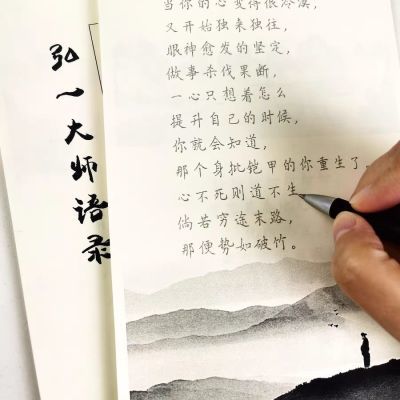 弘一大师语录
当你的心变得很冷漠，
又开始独来独往，
眼神愈发的坚定，
做事杀伐果断，
一心只想着怎么
提升自己的时候，
你就会知道，
那个身批铠甲的你重生了。
心不死则道不生，
倘若穷途末路，
那便势如破竹。